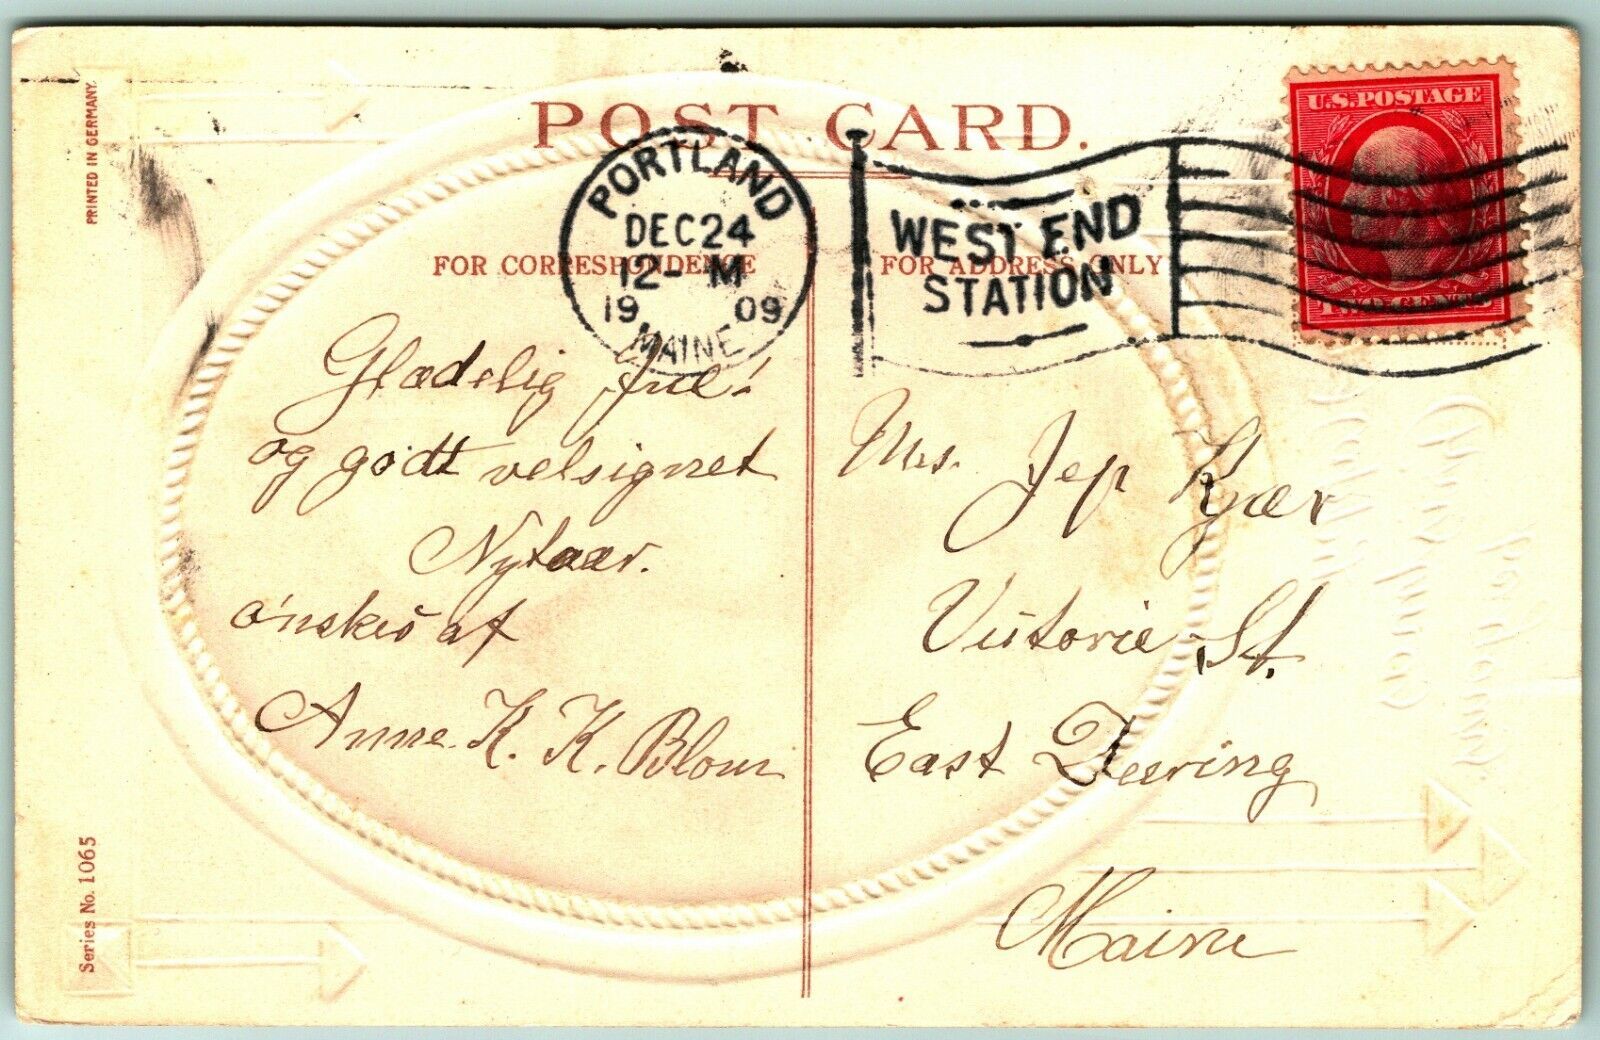 PRINTED IN GERMANY.
POST CARD.
PORTLAND
DEC 24
12- M
19 09
MAINE
WEST END
STATION
U.S. POSTAGE
TWO CENTS
FOR CORRESPONDENCE
FOR ADDRESS ONLY
Glædelig Jul!
og godt velsignet
Nytaar.
ønskes af
Anne. K. K. Blom
Mrs. Jep Kjær
Victorie St.
East Deering
Maine
Series No. 1065